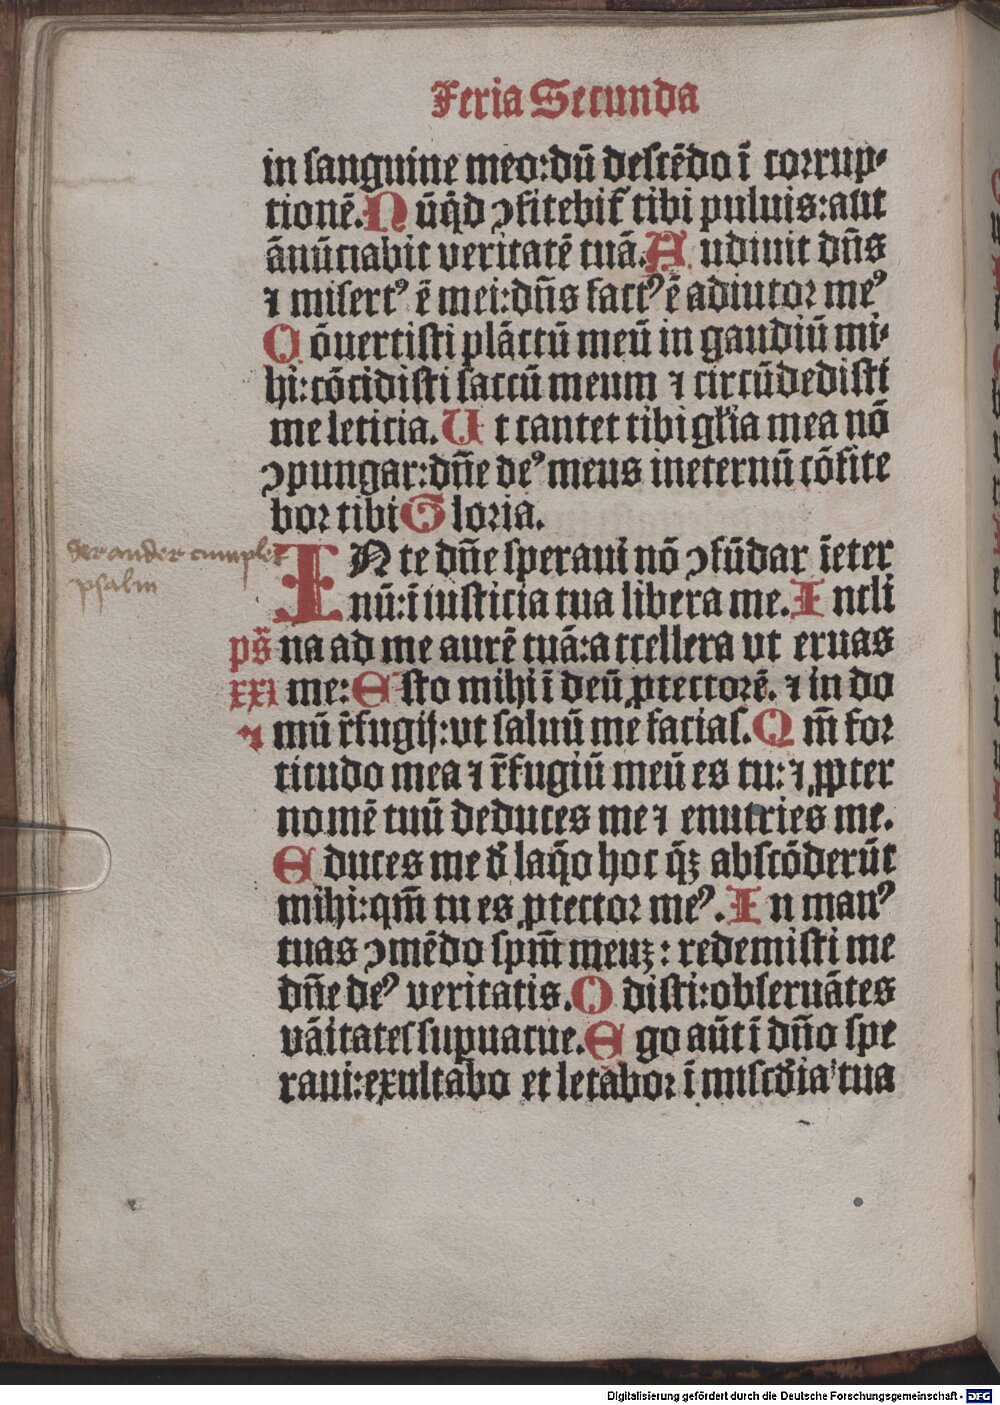 Feria Secunda
in sanguine meo:dū descēdo ī corrup⸗
tionē.Nūq̄d ꝯfitebit᷑ tibi puluis:aut
ānūciabit veritatē tuā.Audiuit dn̄s
⁊ misertꝰ ē mei:dn̄s factꝰ ē adiutor meꝰ
Cōuertisti plāctū meū in gaudiū mi⸗
hi:cōcidisti saccū meum ⁊ circūdedisti
me leticia.Ut cantet tibi gl̄ia mea nō
ꝯpungar:dn̄e deꝰ meus ineternū cōfite
bor tibi Gloria.
der ander cumplet
psalm
IN te dn̄e speraui nō ꝯfūdar īeter
nū:ī iusticia tua libera me.Incli
ps̄ na ad me aurē tuā:accellera vt eruas
xxx me:Esto mihi ī deū ꝓtectorē. ⁊ in do
⁊ mū r̄fugij:vt saluū me facias.Qm̄ for
titudo mea ⁊ r̄fugiū meū es tu:⁊ ꝓpter
nomē tuū deduces me ⁊ enutries me.
Educes me d̄ laq̄o hoc q̄ꝫ abscōderūt
mihi:qm̄ tu es ꝓtector meꝰ.In manꝰ
tuas ꝯmēdo spm̄ meuꝫ: redemisti me
dn̄e deꝰ veritatis.Odisti:obseruātes
vāitates supuacue.Ego aūt ī dn̄o spe
raui:exultabo et letabor ī misc̄dia tua
Digitalisierung gefördert durch die Deutsche Forschungsgemeinschaft - DFG